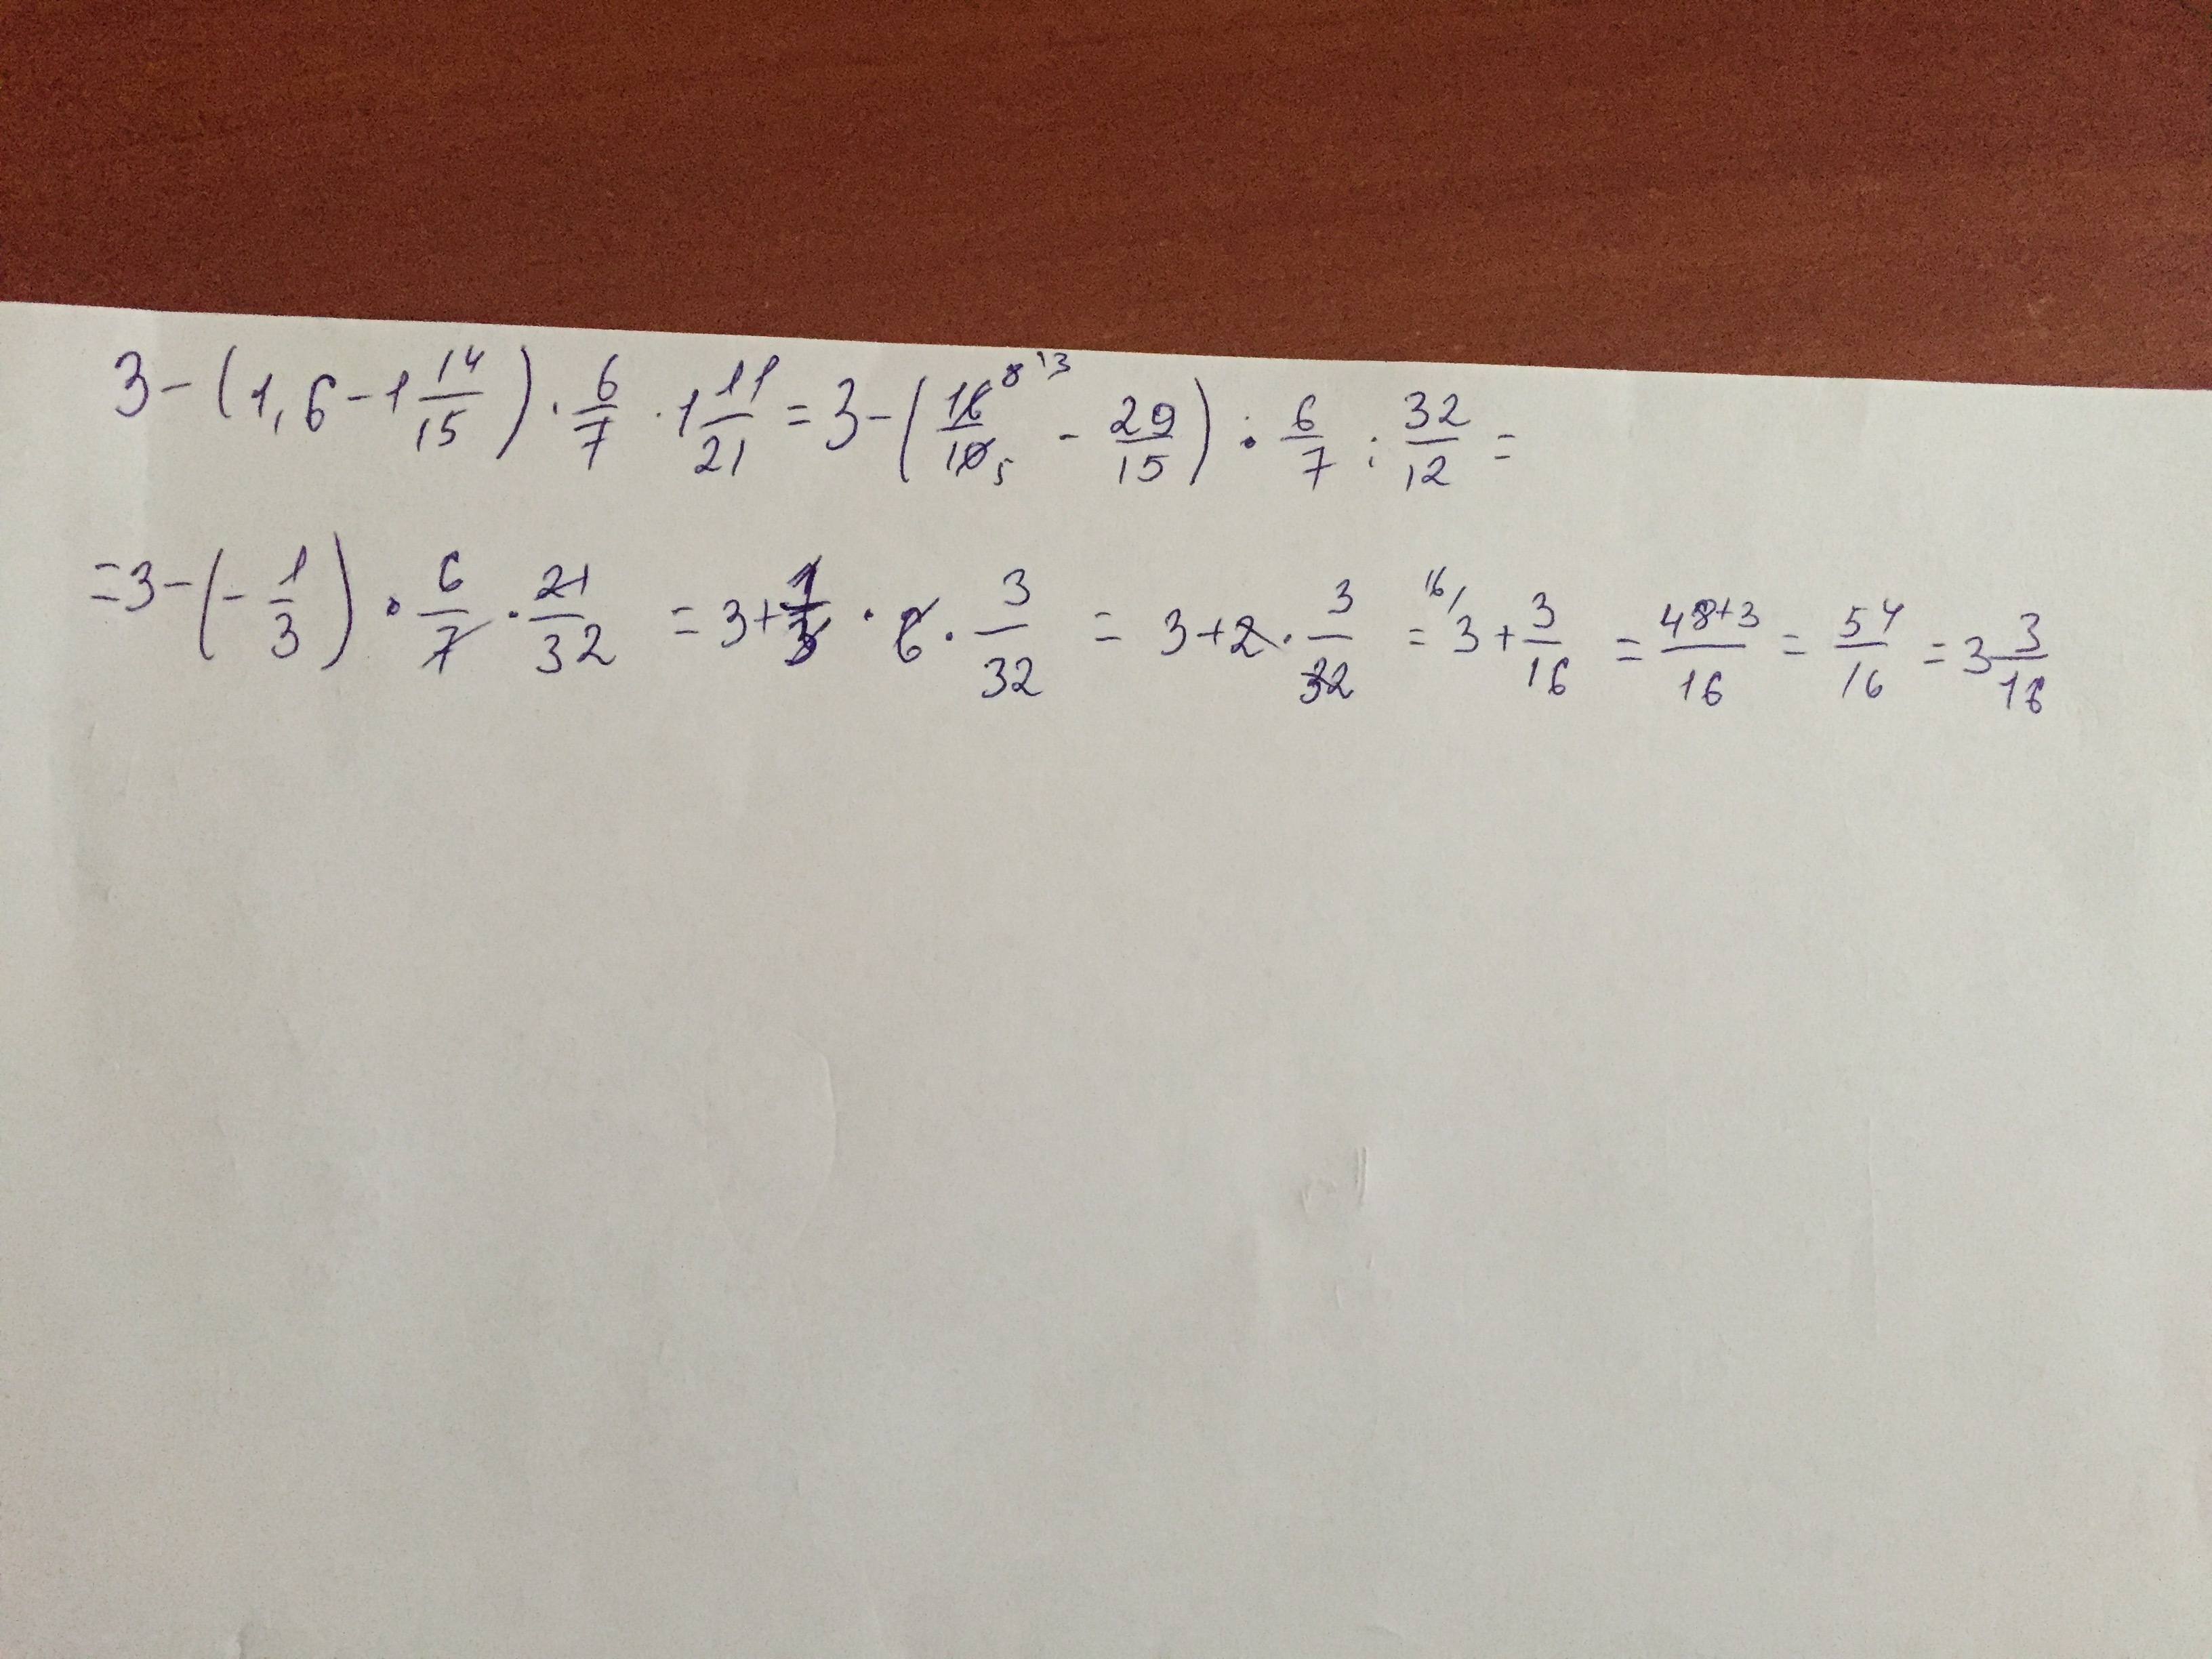 3-(1,6-1 14/15)·6/7·1 11/21=3-(16/10 8 5 13 - 29/15)·6/7:32/12=
=3-(-1/3)·6/7·21/32=3+1/3·6·3/32=3+2·3/32=16/3+3/16=48+3/16=54/16=3 3/16